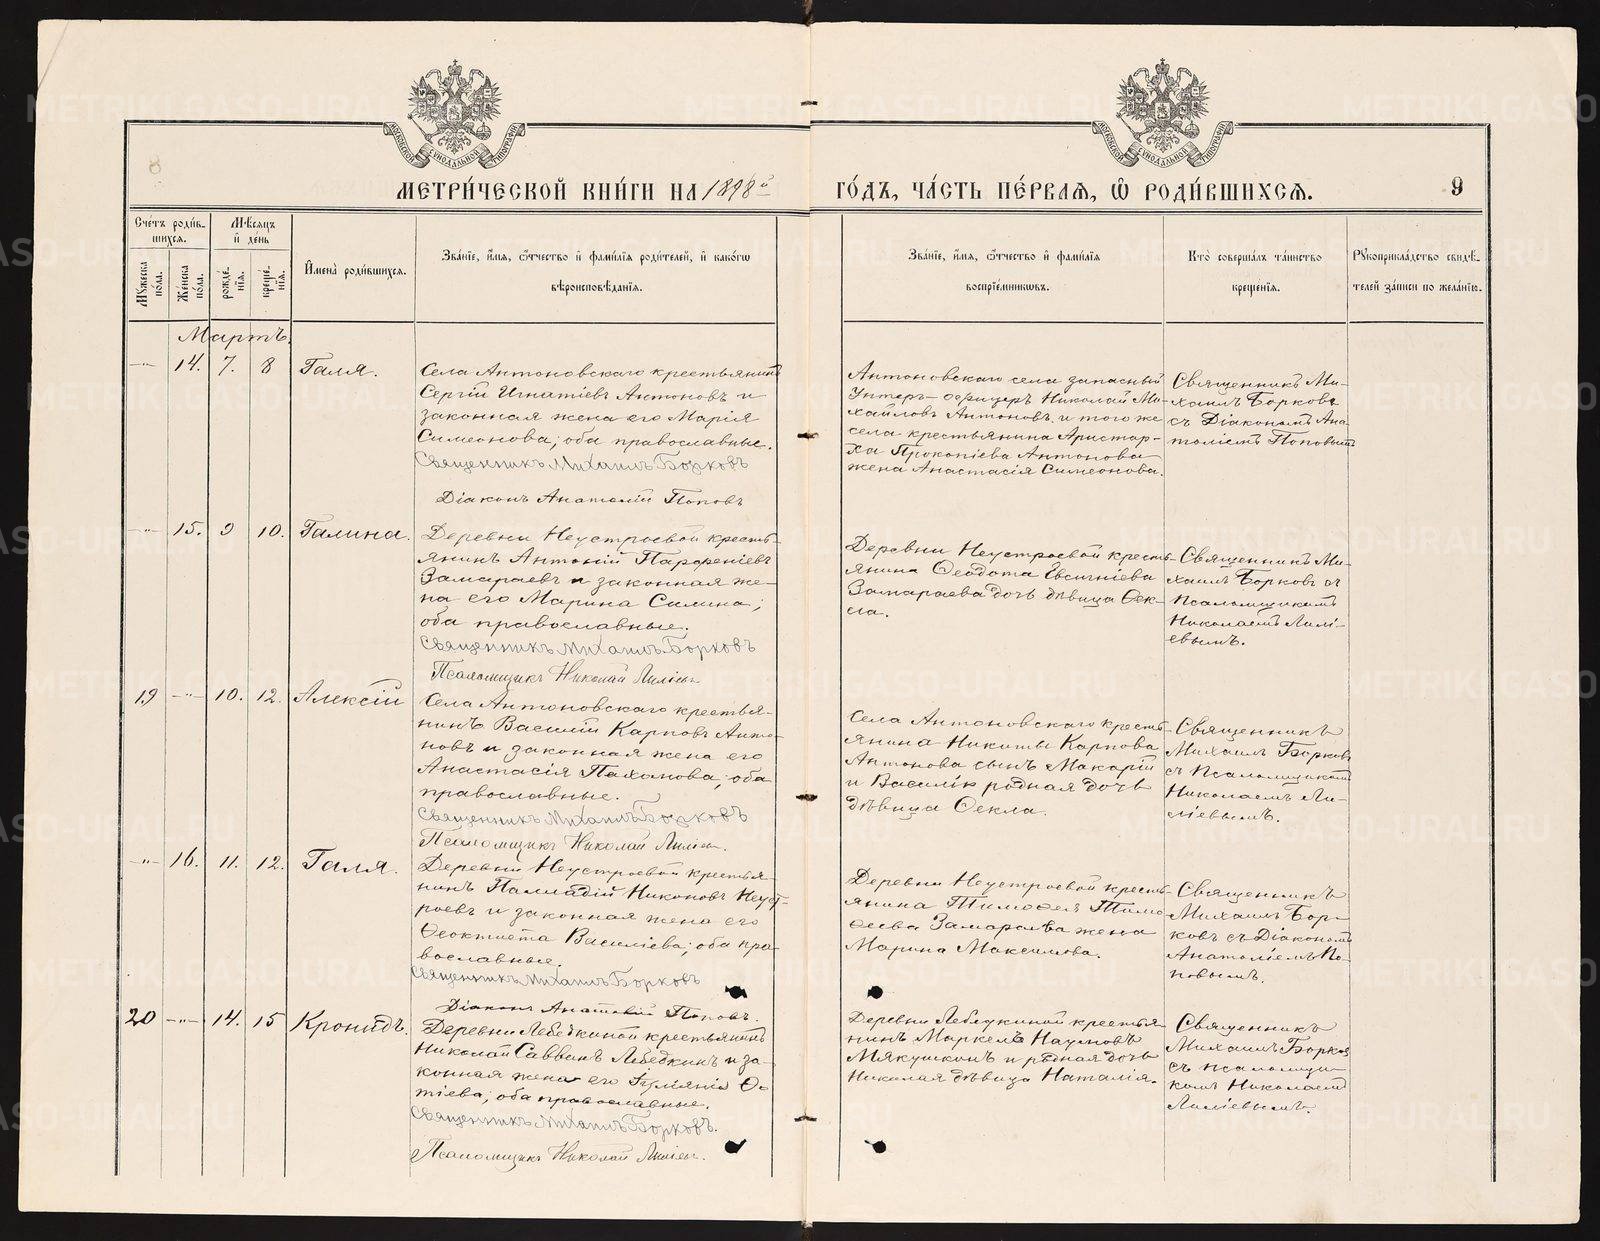 МЕТРИ́ЧЕСКОЙ КНИ́ГИ НА 1898й ГО́ДЪ, ЧА́СТЬ ПЕ́РВАѦ, Ѡ РОДИ́ВШИХСѦ. 9
МОСКОВСКОЙ СѴНОДАЛЬНОЙ ТИПОГРАФІИ
МОСКОВСКОЙ СѴНОДАЛЬНОЙ ТИПОГРАФІИ
Сче́тъ роди́в-
шихсѧ.
Мꙋжеска по́ла.
Же́нска по́ла.
Мѣ́сѧцъ
и҆ де́нь
рожде́нїѧ.
креще́нїѧ.
И҆мена̀ роди́вшихсѧ.
Зва́нїе, и҆́мѧ, ѻ҆́тчество и҆ фами́лїѧ роди́телей, и҆ како́гѡ
вѣроисповѣ́данїѧ.
Зва́нїе, и҆́мѧ, ѻ҆́тчество и҆ фами́лїѧ
воспрїе́мникѡвъ.
Кто̀ соверша́лъ та́инство
креще́нїѧ.
Рꙋкоприкла́дство свидѣ́-
телей за́писи по жела́нїю.
Мартъ.
—"— 14. 7. 8 Галя.
Села Антоновскаго крестьянинъ
Сергій Игнатіевъ Антоновъ и
законная жена его Марія
Симеонова; оба православные.
Священникъ Михаилъ Борковъ
Діаконъ Анатолій Поповъ
Антоновскаго села запасный
Унтеръ-офицеръ Николай Ми-
хайловъ Антоновъ и того же
села крестьянина Аристар-
ха Прокопіева Антонова
жена Анастасія Симеонова.
Священникъ Ми-
хаилъ Борковъ
съ Діакономъ Ана-
толіемъ Поповымъ
—"— 15. 9 10. Галина.
Деревни Неустроевой кресть-
янинъ Антоній Парѳеніевъ
Замараевъ и законная же-
на его Марина Силина;
оба православные.
Священникъ Михаилъ Борковъ
Псаломщикъ Николай Лилѣевъ
Деревни Неустроевой кресть-
янина Ѳеодота Евсигніева
Замараева дочь дѣвица Ѳек-
ла.
Священникъ Ми-
хаилъ Борковъ съ
Псаломщикомъ
Николаемъ Лилі-
евымъ.
19 —"— 10. 12. Алексій
Села Антоновскаго крестья-
нинъ Василій Карповъ Анто-
новъ и законная жена его
Анастасія Пахомова; оба
православные.
Священникъ Михаилъ Борковъ
Псаломщикъ Николай Лиліевъ.
Села Антоновскаго кресть-
янина Никиты Карпова
Антонова сынъ Макарій
и Василія родная дочь
дѣвица Ѳекла.
Священникъ
Михаилъ Борковъ
съ Псаломщикомъ
Николаемъ Ли-
ліевымъ.
—"— 16. 11. 12. Галя.
Деревни Неустроевой крестья-
нинъ Палладій Никоновъ Неуст-
роевъ и законная жена его
Ѳеоктиста Василіева; оба пра-
вославные.
Священникъ Михаилъ Борковъ
Діаконъ Анатолій Поповъ.
Деревни Неустроевой кресть-
янина Тимоѳея Тимо-
ѳеева Замараева жена
Марина Максимова.
Священникъ
Михаилъ Бор-
ковъ съ Діакономъ
Анатоліемъ По-
повымъ.
20 —"— 14. 15 Кронидъ.
Деревни Лебедкиной крестьянинъ
Николай Саввинъ Лебедкинъ и за-
конная жена его Іуліанія Ѳо-
тіева; оба православные.
Священникъ Михаилъ Борковъ.
Псаломщикъ Николай Лиліевъ.
Деревни Лебедкиной крестья-
нинъ Маркелъ Наумовъ
Мякушкинъ и родная дочь
Николая дѣвица Наталія.
Священникъ
Михаилъ Борковъ
съ псаломщи-
комъ Николаемъ
Лиліевымъ.
METRIKI.GASO-URAL.RU